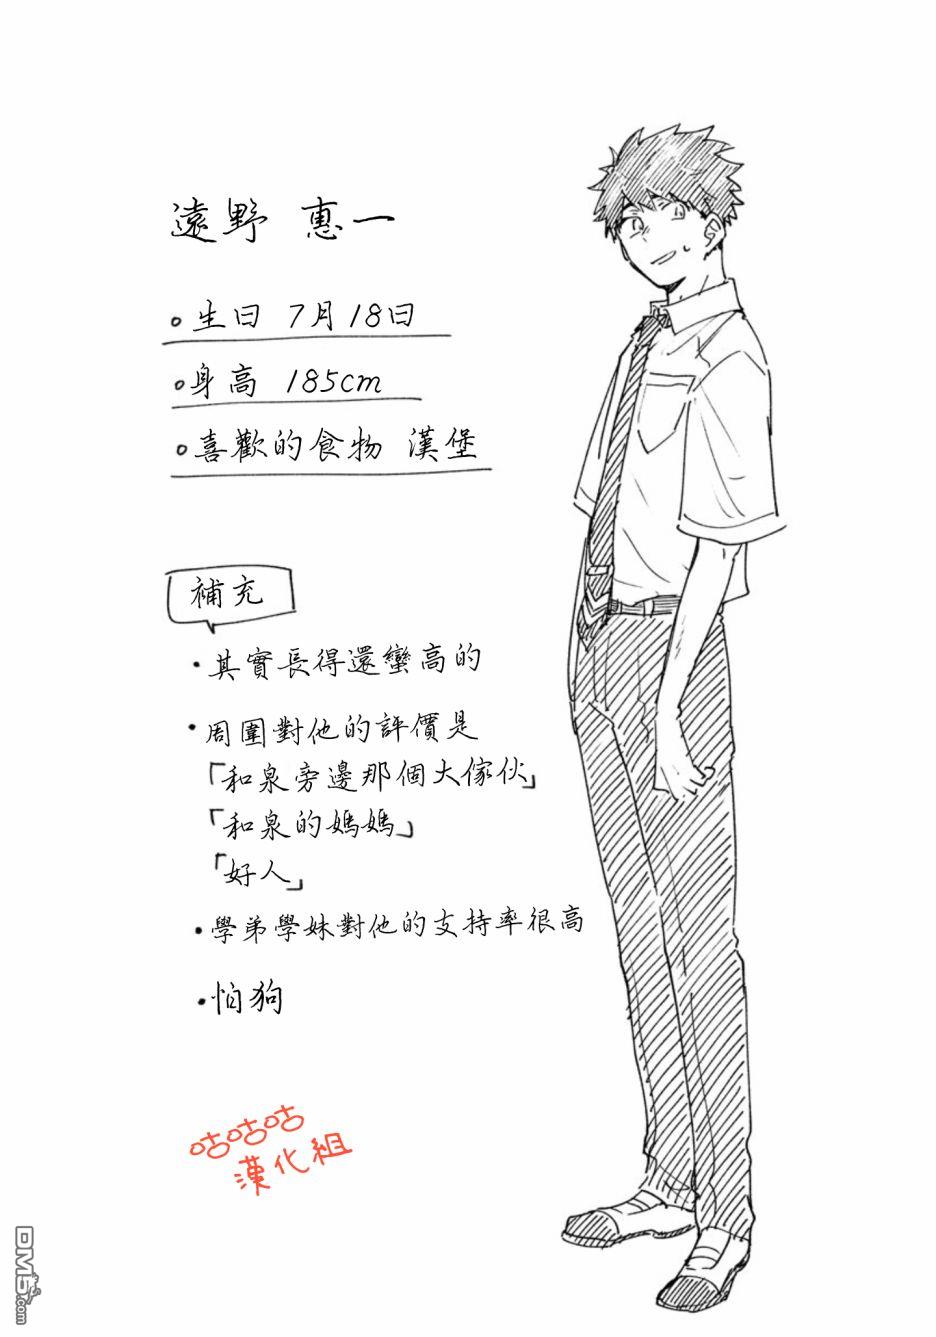 遠野 惠一
。生日 7月18日
。身高 185cm
。喜歡的食物 漢堡
補充
·其實長得還蠻高的
·周圍對他的評價是
「和泉旁邊那個大傢伙」
「和泉的媽媽」
「好人」
·學弟學妹對他的支持率很高
·怕狗
咕咕咕
漢化組
DM5.com